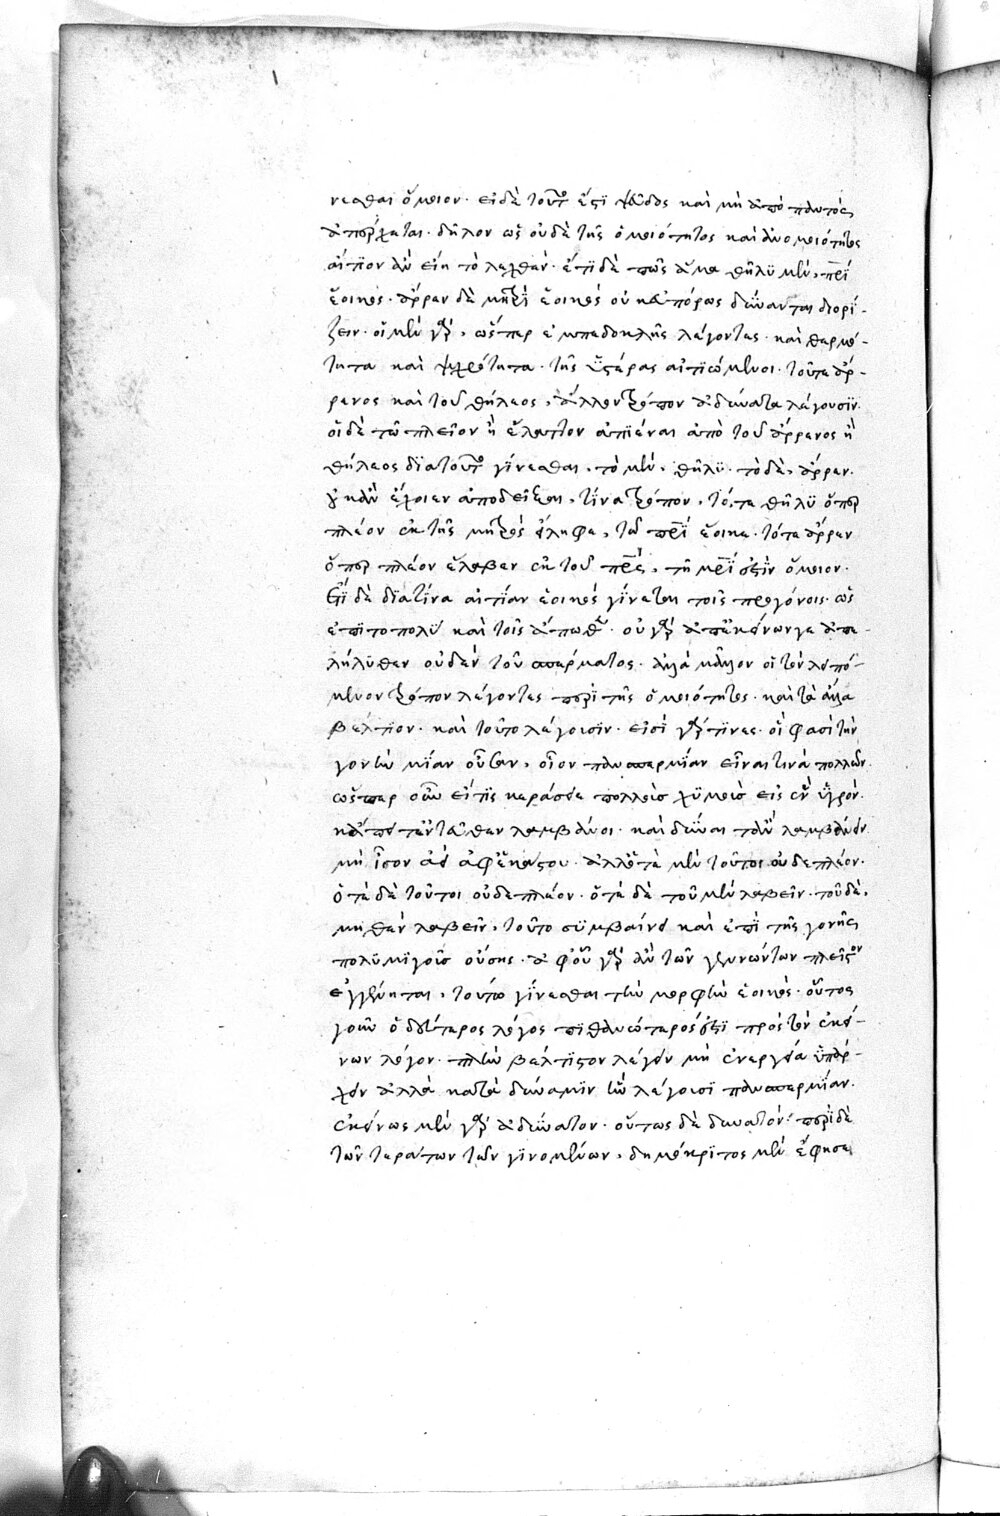 νεσθαι ὅμοιον· εἰ δὲ τοῦτό ἐστι ψεῦδος καὶ μὴ ἀπὸ παντὸς
ἀπέρχεται· δῆλον ὡς οὐδὲ τῆς ὁμοιότητος καὶ ἀνομοιότητος
αἴτιον ἂν εἴη τὸ λεχθέν· ἔτι δὲ πῶς ἅμα θῆλυ μὲν, πρὶ
ἐοικός· ἄρρεν δὲ μητρὶ ἐοικὸς οὐκ εὐπόρως δύνανται διορί-
ζειν· οἱ μὲν γὰρ, ὥσπερ ἐμπεδοκλῆς λέγοντες· καὶ θερμό-
τητα καὶ ψυχρότητα· τῆς ὑστέρας αἰτιώμενοι· τοῦτε ἄρ-
ρενος καὶ τοῦ θήλεος, ἄλλον τρόπον ἀδύνατα λέγουσιν·
οἱ δὲ τῶ πλεῖον ἢ ἔλαττον ἀπιέναι ἀπὸ τοῦ ἄρρενος ἢ
θήλεος διὰ τοῦτο γίνεσθαι, τὸ μὲν, θῆλυ· τὸ δὲ, ἄρρεν·
οὐκ ἂν ἔχοιεν ἀποδεῖξαι, τίνα τρόπον, τό, τε θῆλυ ὅπερ
πλέον ἐκ τῆς μητρὸς εἴληφε, τῶ πρὶ ἔοικε· τό τε ἄρρεν
ὅπερ πλέον ἔλαβεν ἐκ τοῦ πρς, τῆ μρὶ ἐστὶν ὅμοιον·
ἔτι δὲ διὰ τίνα αἰτίαν ἐοικὸς γίνεται τοῖς προγόνοις· ὡς
ἐπὶ τὸ πολὺ καὶ τοῖς ἄπωθεν· οὐ γὰρ ἀπ' ἐκείνων γε ἀπε-
λήλυθεν οὐδὲν τοῦ σπέρματος· ἀλλὰ μᾶλλον οἱ τὸν λειπό-
μενον τρόπον λέγοντες περὶ τῆς ὁμοιότητος· καὶ τὰ ἄλλα
βέλτιον· καὶ τοῦτο λέγουσιν· εἰσὶ γάρ τινες· οἵ φασι τὴν
γονὴν μίαν οὖσαν, οἷον πανσπερμίαν εἶναι τινὰ πολλῶν·
ὥσπερ οὖν εἴ τις κεράσειε πολλοὺς χυμοὺς εἰς ἓν ὑγρόν·
κἄπειτ' ἐντεῦθεν λαμβάνοι· καὶ δύναιτ' ἂν λαμβάνειν
μὴ ἴσον ἀεὶ ἀφ' ἑκάστου· ἀλλ' ὁτὲ μὲν τοῦτοι οὐδε πλέον·
ὁτὲ δὲ τοῦτοι οὐδε πλέον· ὁτὲ δὲ τοῦ μὲν λαβεῖν· τοῦ δὲ,
μηθὲν λαβεῖν, τοῦτο συμβαίνει καὶ ἐπὶ τῆς γονῆς
πολυμιγοῦς οὔσης· ἀφ' οὗ γὰρ ἂν τῶν γεννώντων πλεῖστον
ἐγγένηται, τούτω γίνεσθαι τὴν μορφὴν ἐοικός· οὗτος
γοῦν ὁ δεύτερος λόγος πιθανώτερός ἐστι πρὸς τὸν ἐκεί-
νων λόγον· πλὴν βέλτιστον λέγειν μὴ ἐνεργεία ὑπάρ-
χειν ἀλλὰ κατὰ δύναμιν ἣν λέγουσι πανσπερμίαν·
ἐκείνως μὲν γὰρ ἀδύνατον· οὕτως δὲ δυνατόν· περὶ δὲ
τῶν τεράτων τῶν γινομένων, δημόκριτος μὲν ἔφησε